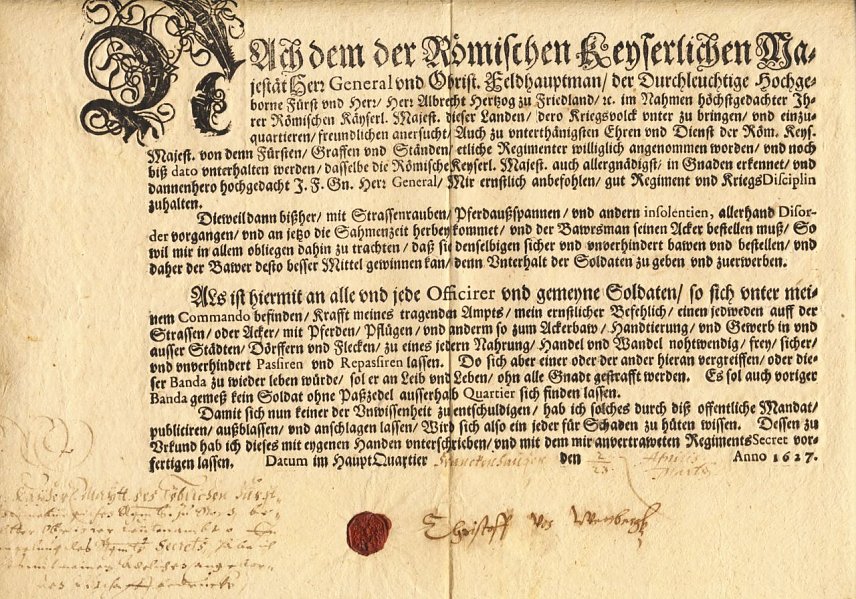 NAch dem der Römischen Keyserlichen Ma-
jestät Herr General vnd Obrist. Feldhauptman/ der Durchleuchtige Hochge-
borne Fürst vnd Herr/ Herr Albrecht Hertzog zu Friedland/ ꝛc. im Nahmen höchstgedachter Ih-
rer Römischen Käyserl. Majest. dieser Landen/ dero Kriegsvolck vnter zu bringen/ vnd einzu-
quartieren/ freundlichen anersucht/ Auch zu vnterthänigsten Ehren vnd Dienst der Röm. Keys.
Majest. von denn Fürsten/ Graffen vnd Ständen/ etliche Regimenter williglich angenommen worden/ vnd noch
biß dato vnterhalten werden/ dasselbe die Römische Keyserl. Majest. auch allergnädigst/ in Gnaden erkennet/ vnd
dannenhero hochgedacht J. F. Gn. Herr General/ Mir ernstlich anbefohlen/ gut Regiment vnd KriegsDisciplin
zuhalten.
Dieweil dann bißher/ mit Strassenrauben/ Pferdaußspannen/ vnd andern insolentien, allerhand Disor-
der vorgangen/ vnd an jetzo die Sahmenzeit herbey kommet/ vnd der Bawrsman seinen Acker bestellen muß/ So
wil mir in allem obliegen dahin zu trachten/ daß sie denselbigen sicher vnd vnverhindert bawen vnd bestellen/ vnd
daher der Bawer desto besser Mittel gewinnen kan/ denn Vnterhalt der Soldaten zu geben vnd zuerwerben.
ALs ist hiermit an alle vnd jede Officirer vnd gemeyne Soldaten/ so sich vnter mei-
nem Commando befinden/ Krafft meines tragenden Ampts/ mein ernstlicher Befehlich/ einen jedweden auff der
Strassen/ oder Acker/ mit Pferden/ Pflügen/ vnd anderm so zum Ackerbaw/ Handtierung/ vnd Gewerb in vnd
ausser Städten/ Dörffern vnd Flecken/ zu eines jedern Nahrung/ Handel vnd Wandel nohtwendig/ frey/ sicher/
vnd vnverhindert Passiren vnd Repassiren lassen. Do sich aber einer oder der ander hieran vergreiffen/ oder die-
ser Banda zu wieder leben würde/ sol er an Leib vnd Leben/ ohn alle Gnadt gestrafft werden. Es sol auch voriger
Banda gemeß kein Soldat ohne Paßzedel ausserhab Quartier sich finden lassen.
Damit sich nun keiner der Vnwissenheit zu entschuldigen/ hab ich solches durch diß offentliche Mandat/
publitiren/ außblassen/ vnd anschlagen lassen/ Wird sich also ein jeder für Schaden zu hüten wissen. Dessen zu
Vrkund hab ich dieses mit eygenen Handen vnterschrieben/ vnd mit dem mir anvertraweten RegimentsSecret vor-
fertigen lassen. Datum im HauptQuartier Franckenhausen den 2/23. Aprilis Martii Anno 1627.
Christoff